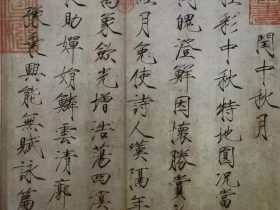 閏中秋月
桂彩中秋特地圓況當
魄澄鮮因懷勝賞
月免使詩人嘆隔年
萬象斂光增浩蕩四溟
夜助嬋娟鱗雲清廓
豫乘興能無賦詠篇